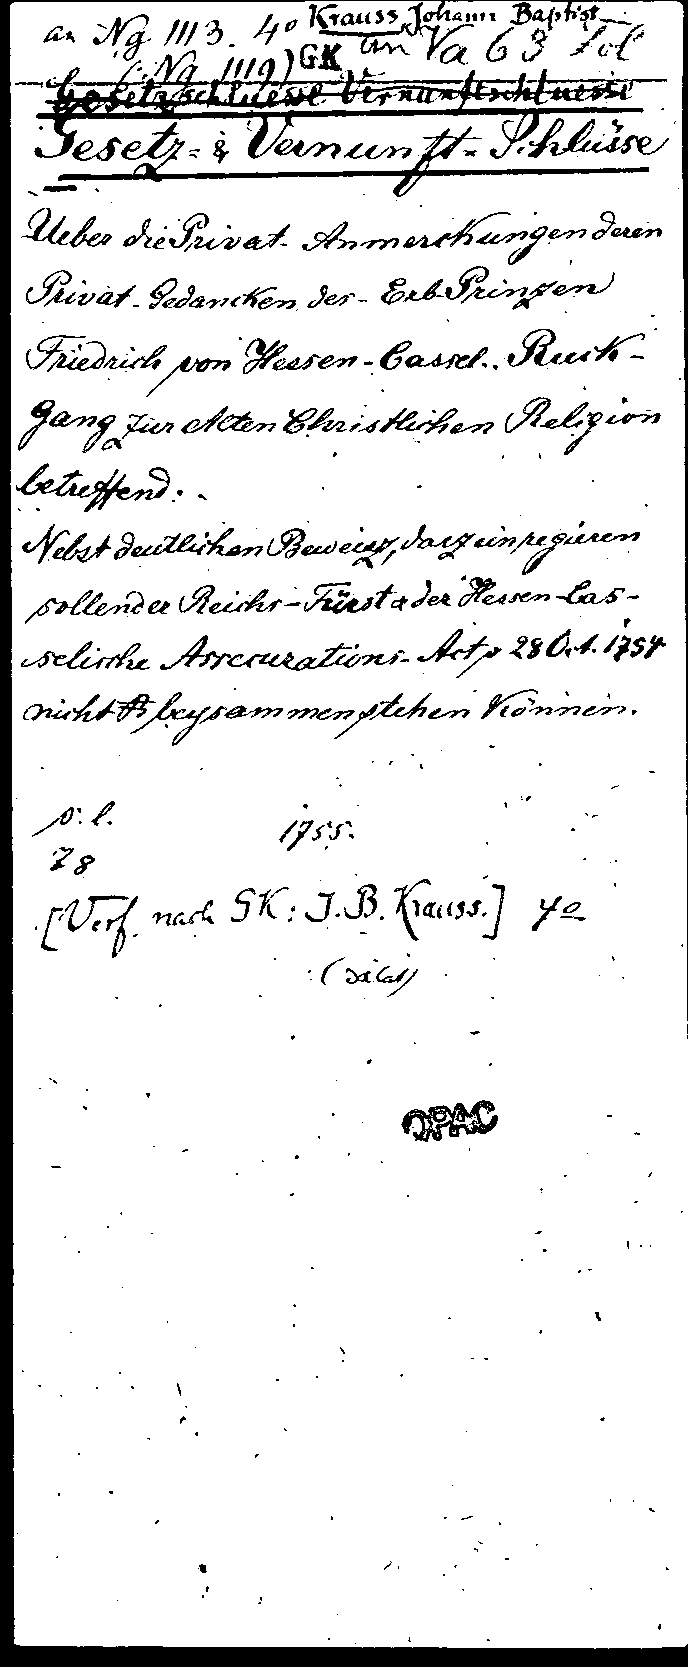 an Ng 1113. 4o Krauss, Johann Baptist
an Va 63 fol
(Ng 1119) GK
Gesetzschluesse Vernunftschluesse
Gesetz- & Vernunft-Schlüsse
Ueber die Privat-Anmerckungen deren
Privat-Gedancken des-Erb-Prinzen
Friedrich von Hessen-Cassel. Ruck-
gang zur Alten Christlichen Religion
betreffend.
Nebst deutlichen Beweisz, dasz ein regieren
sollender Reichs-Fürst & der Hessen-Cas-
selische Assecurations-Act v 28 Oct. 1754
nicht beysammen stehen können.
s. l. 1755.
78
[Verf. nach GK: J. B. Krauss.] 4o
OPAC